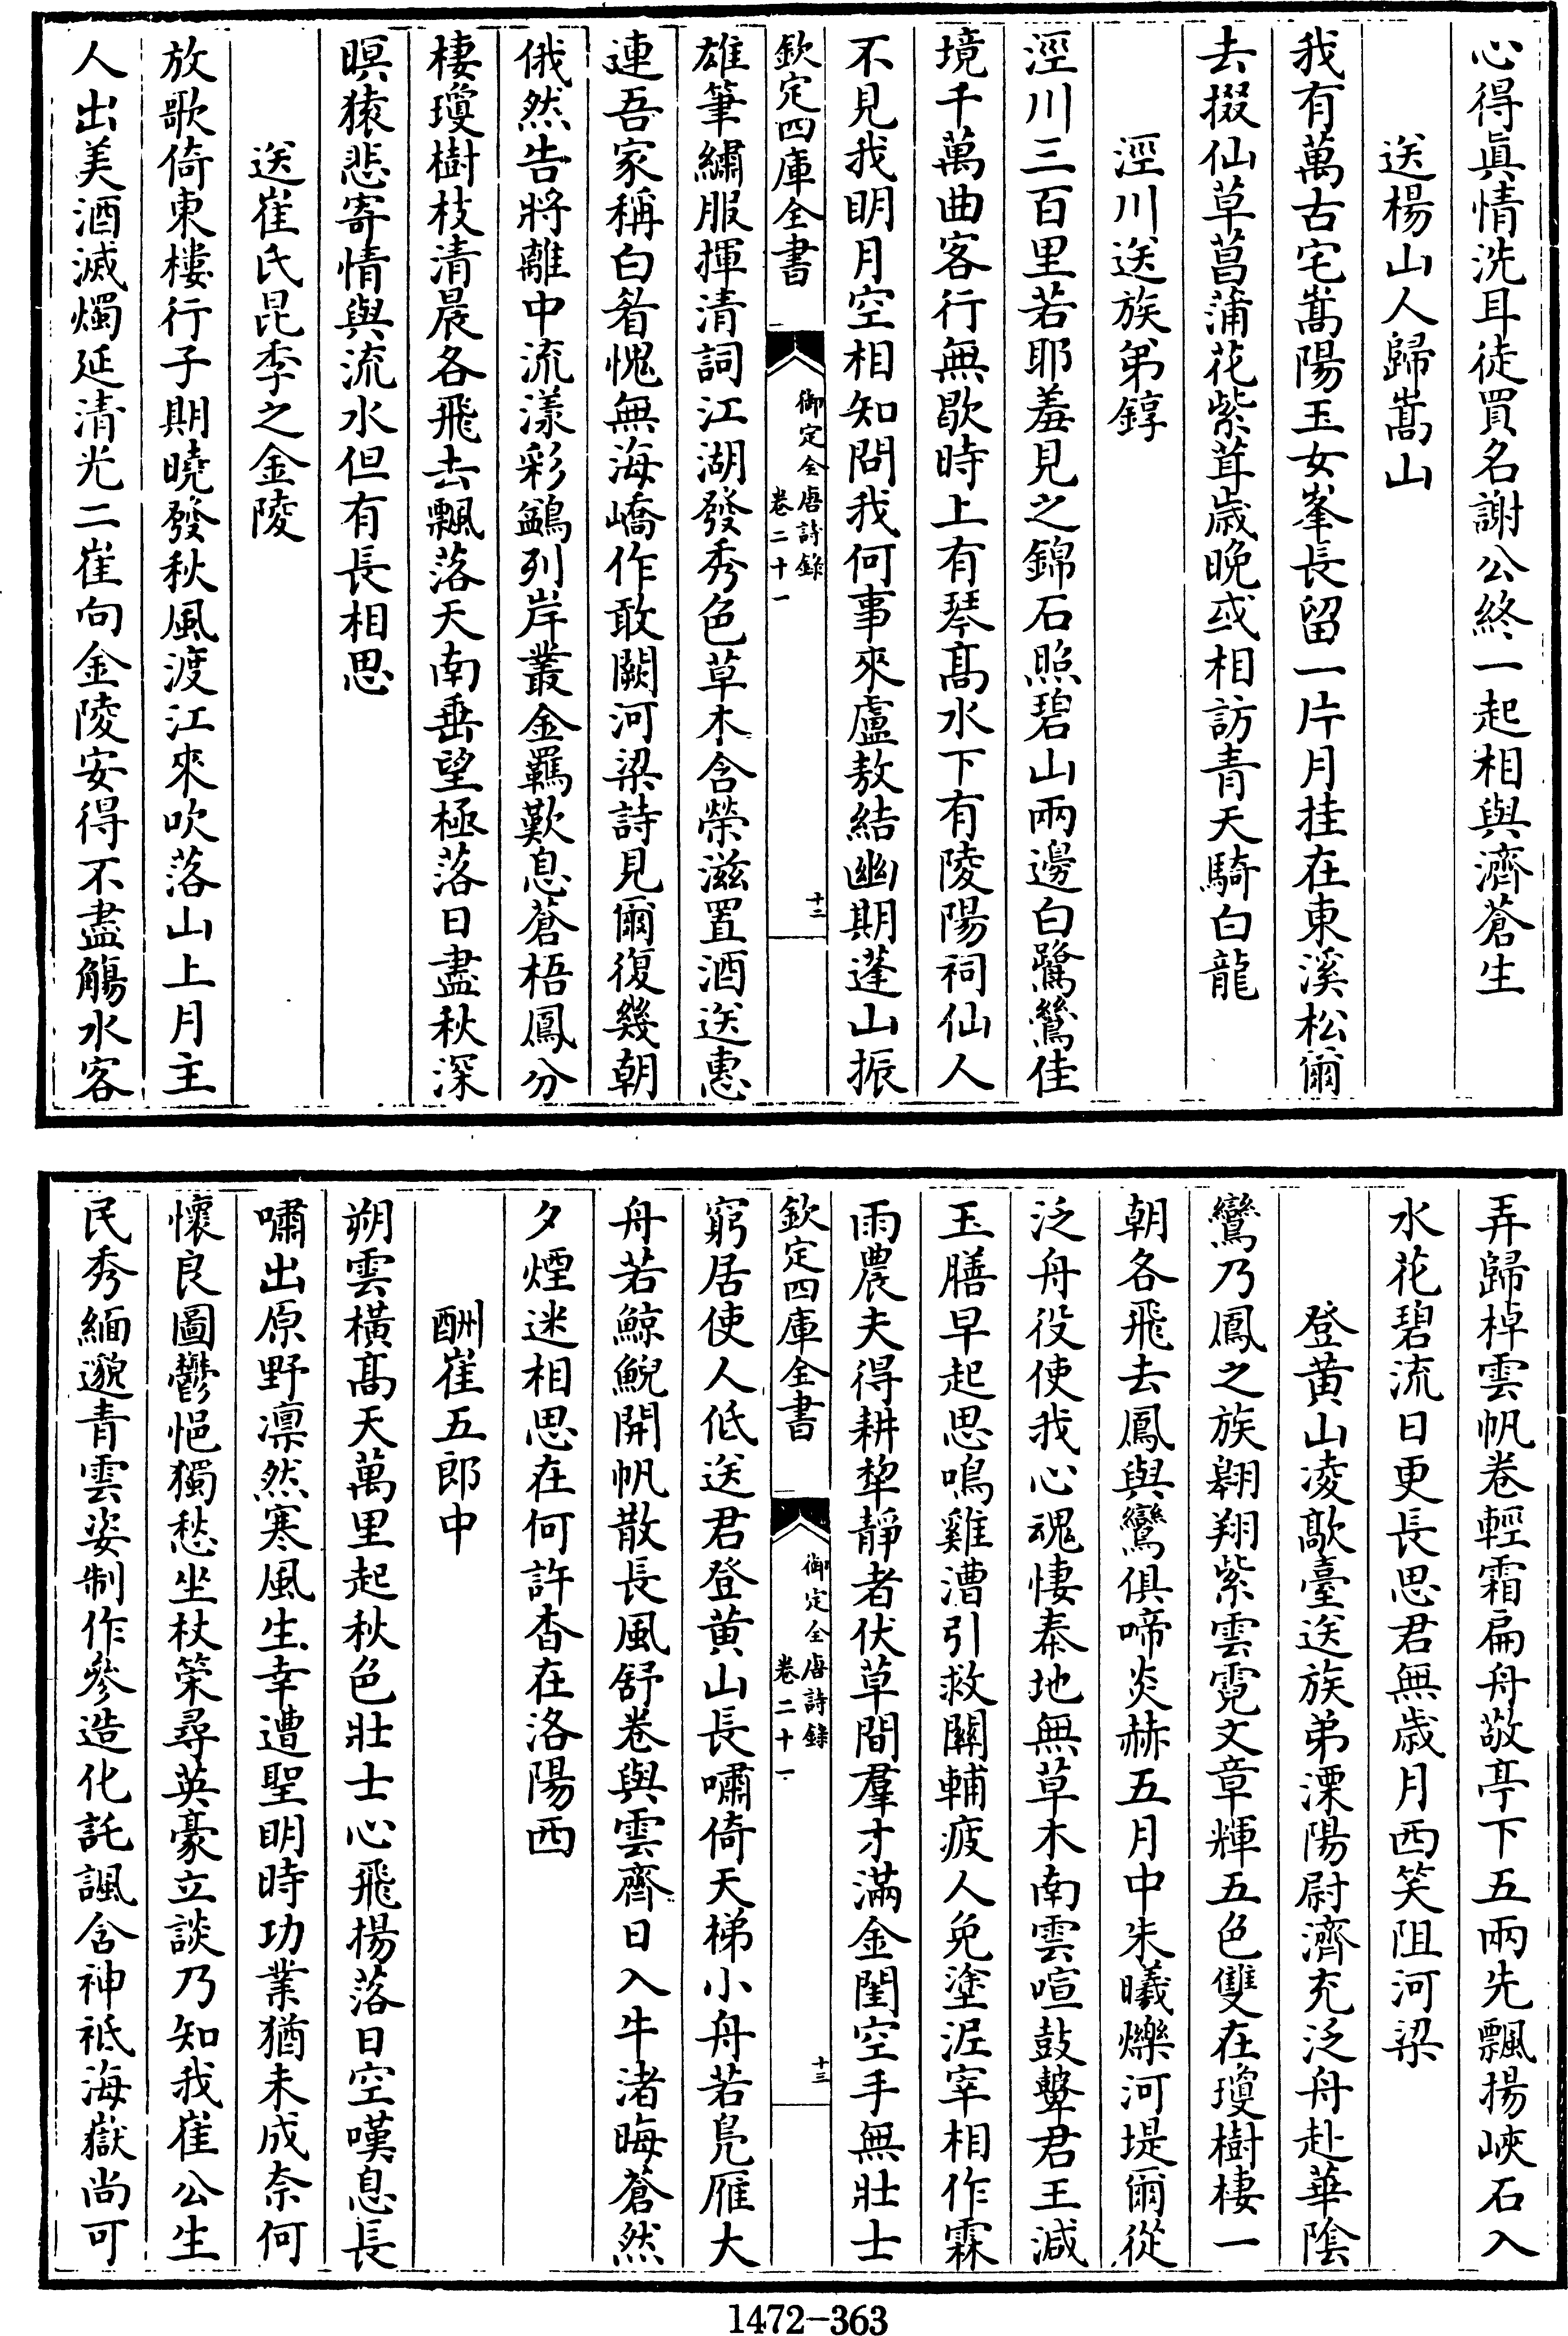 心得眞情洗耳徒買名謝公終一起相與濟蒼生
送楊山人歸嵩山
我有萬古宅嵩陽玉女峯長留一片月挂在東溪松爾
去掇仙草菖蒲花紫茸歲晚或相訪青天騎白龍
涇川送族弟錞
涇川三百里若耶羞見之錦石照碧山兩邊白鷺鷥佳
境千萬曲客行無歇時上有琴髙水下有陵陽祠仙人
不見我明月空相知問我何事來盧敖結幽期蓬山振
欽定四庫全書
御定全唐詩錄
卷二十一
十二
雄筆繡服揮清詞江湖發秀色草木含榮滋置酒送惠
連吾家稱白眉愧無海嶠作敢闕河梁詩見爾復幾朝
俄然告將離中流漾彩鷁列岸叢金羈歎息蒼梧鳳分
棲瓊樹枝清晨各飛去飄落天南垂望極落日盡秋深
暝猿悲寄情與流水但有長相思
送崔氏昆季之金陵
放歌倚東樓行子期曉發秋風渡江來吹落山上月主
人出美酒滅燭延清光二崔向金陵安得不盡觴水客
弄歸棹雲帆卷輕霜扁舟敬亭下五兩先飄揚峽石入
水花碧流日更長思君無歲月西笑阻河梁
登黄山凌歊臺送族弟溧陽尉濟充泛舟赴華陰
鸞乃鳳之族翱翔紫雲霓文章輝五色雙在瓊樹棲一
朝各飛去鳳與鸞俱啼炎赫五月中朱曦爍河堤爾從
泛舟役使我心魂悽秦地無草木南雲喧鼓鼙君王減
玉膳早起思鳴雞漕引救關輔疲人免塗泥宰相作霖
雨農夫得耕犂靜者伏草間羣才滿金閨空手無壯士
欽定四庫全書
御定全唐詩錄
卷二十一
十三
窮居使人低送君登黄山長嘯倚天梯小舟若凫雁大
舟若鯨鯢開帆散長風舒卷與雲齊日入牛渚晦蒼然
夕煙迷相思在何許杳在洛陽西
酬崔五郎中
朔雲橫髙天萬里起秋色壯士心飛揚落日空嘆息長
嘯出原野凛然寒風生幸遭聖明時功業猶未成奈何
懷良圖鬱悒獨愁坐杖策尋英豪立談乃知我崔公生
民秀緬邈青雲姿制作參造化託諷含神祗海嶽尚可
1472-363